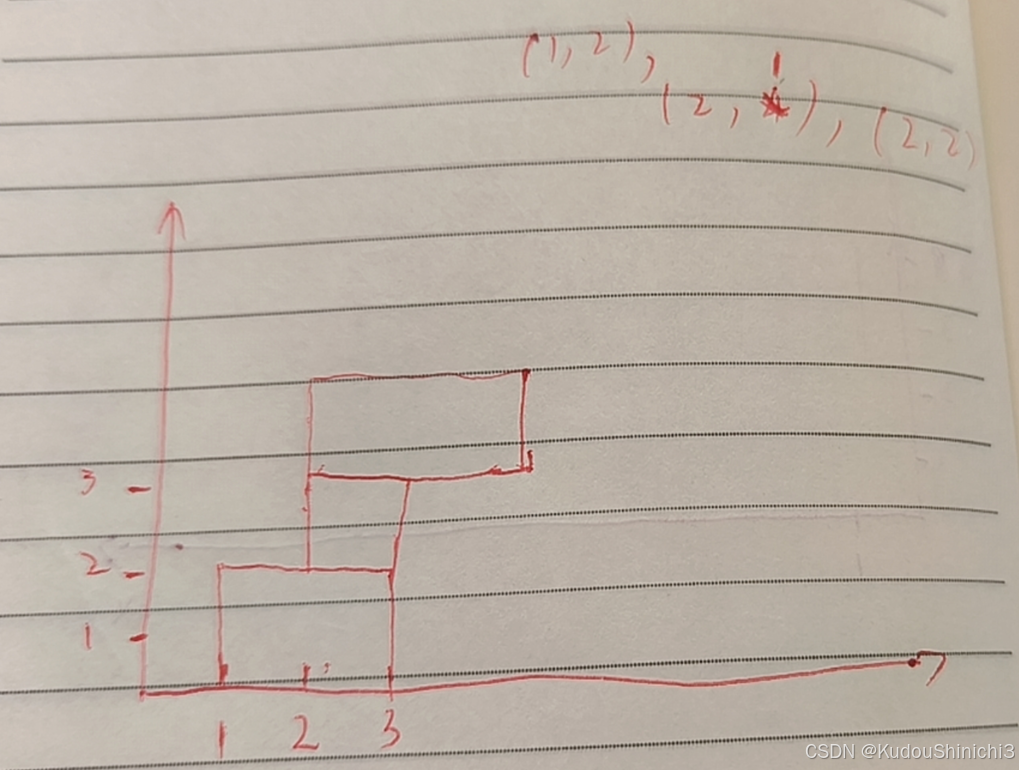 (1,2),
(2, 1), (2,2)
3
2
1
1 2 3
CSDN @KudouShinichi3